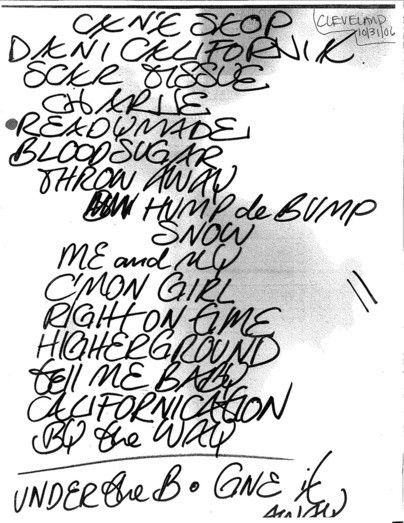 CLEVELAND
10/31/06
CAN'T STOP
DANI CALIFORNIA
SCAR TISSUE
CHARLIE
READYMADE
BLOODSUGAR
THROW AWAY
HUMP de BUMP
SNOW
ME and MY
C'MON GIRL
RIGHT ON TIME
HIGHERGROUND
tell ME BABY
CALIFORNICATION
BY the WAY
UNDER the B • GIVE it
AWAY